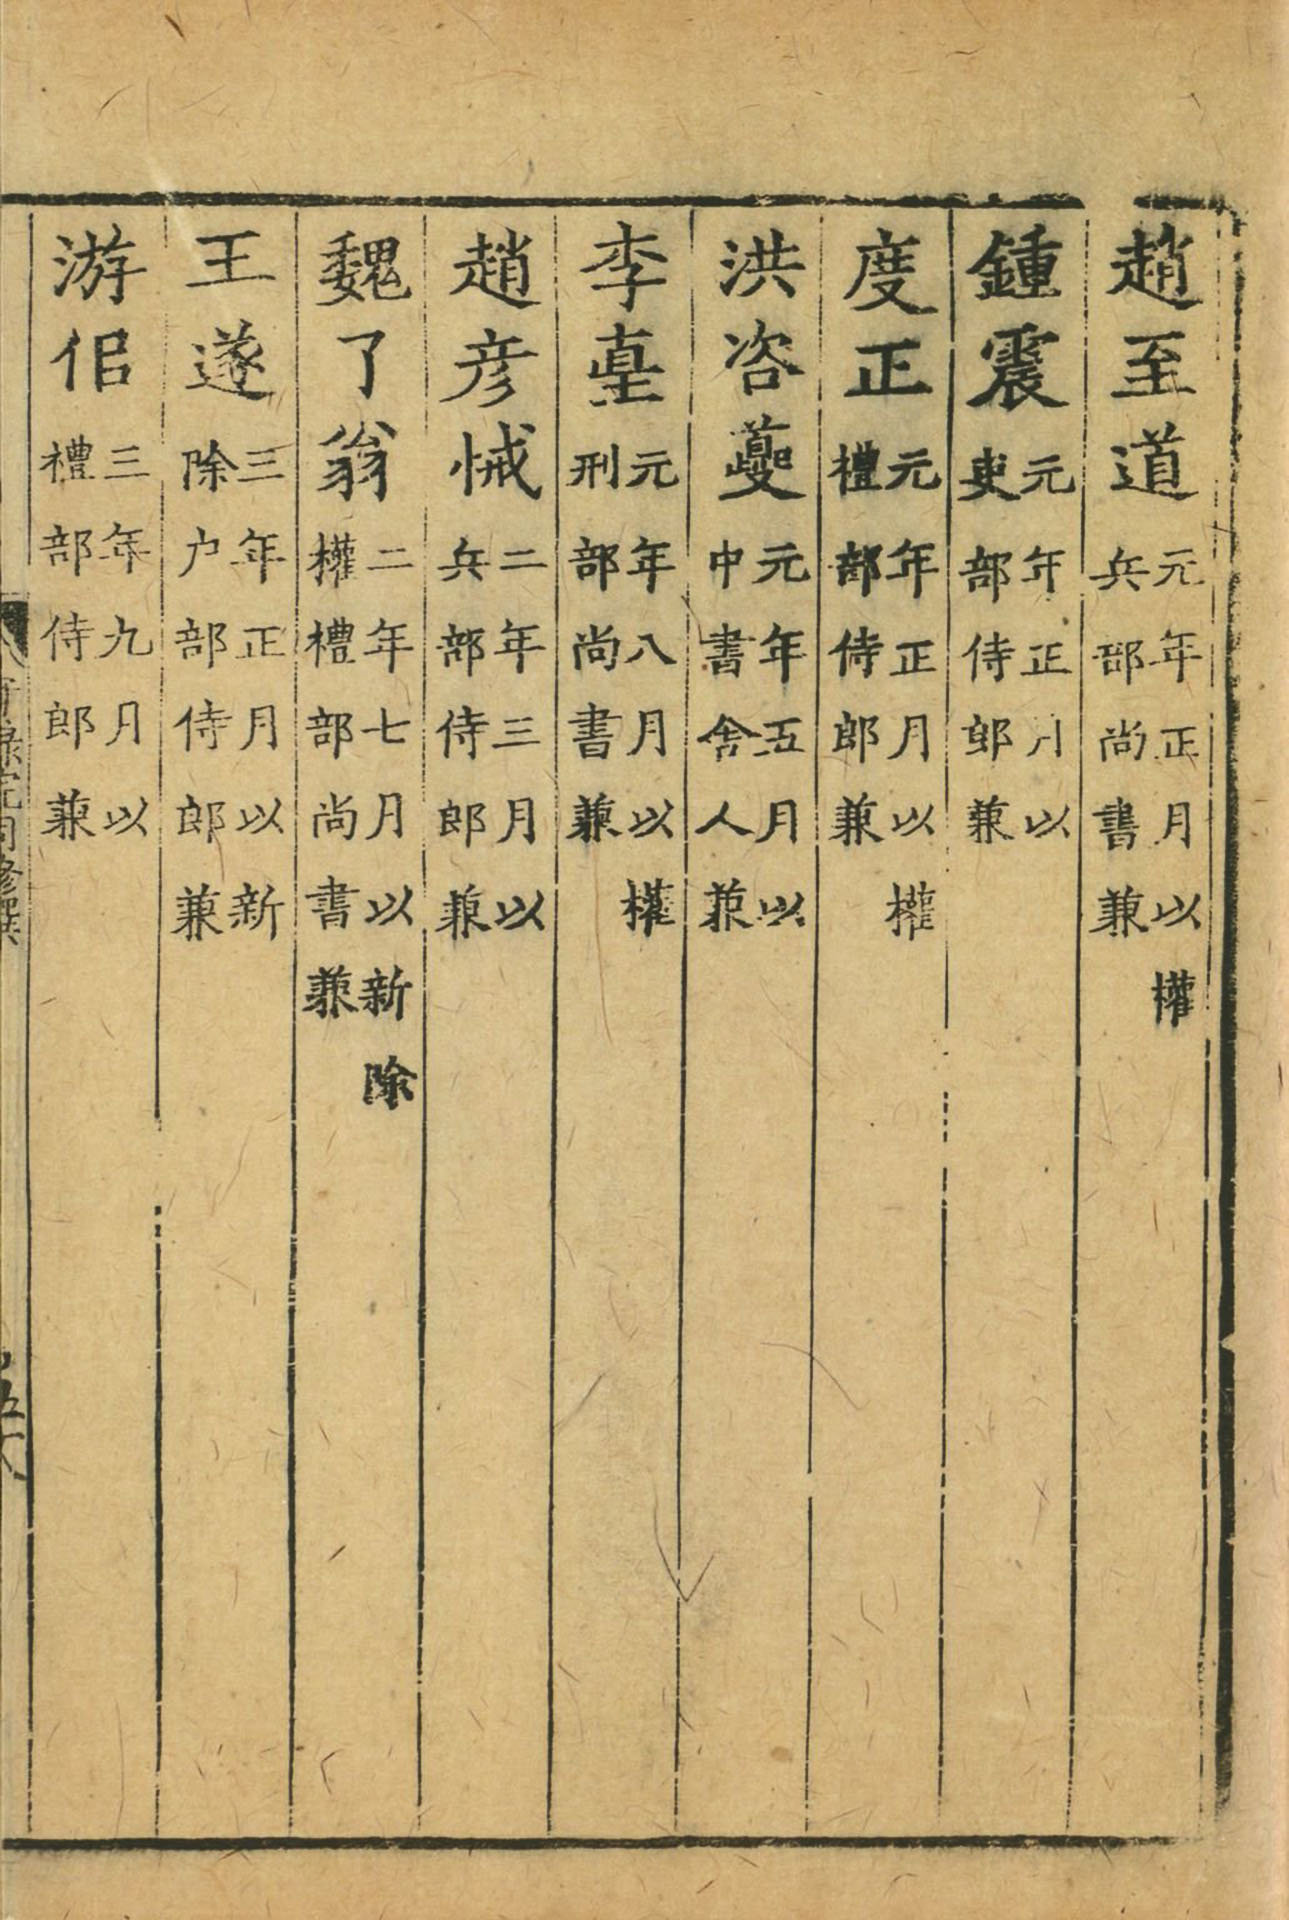 趙至道元年正月以權兵部尚書兼
鍾震元年正月以吏部侍郎兼
度正元年正月以權禮部侍郎兼
洪咨夔元年五月以中書舍人兼
李𡌴元年八月以權刑部尚書兼
趙彥悈二年三月以兵部侍郎兼
魏了翁二年七月以新除權禮部尚書兼
王遂三年正月以新除户部侍郎兼
游佀三年九月以禮部侍郎兼